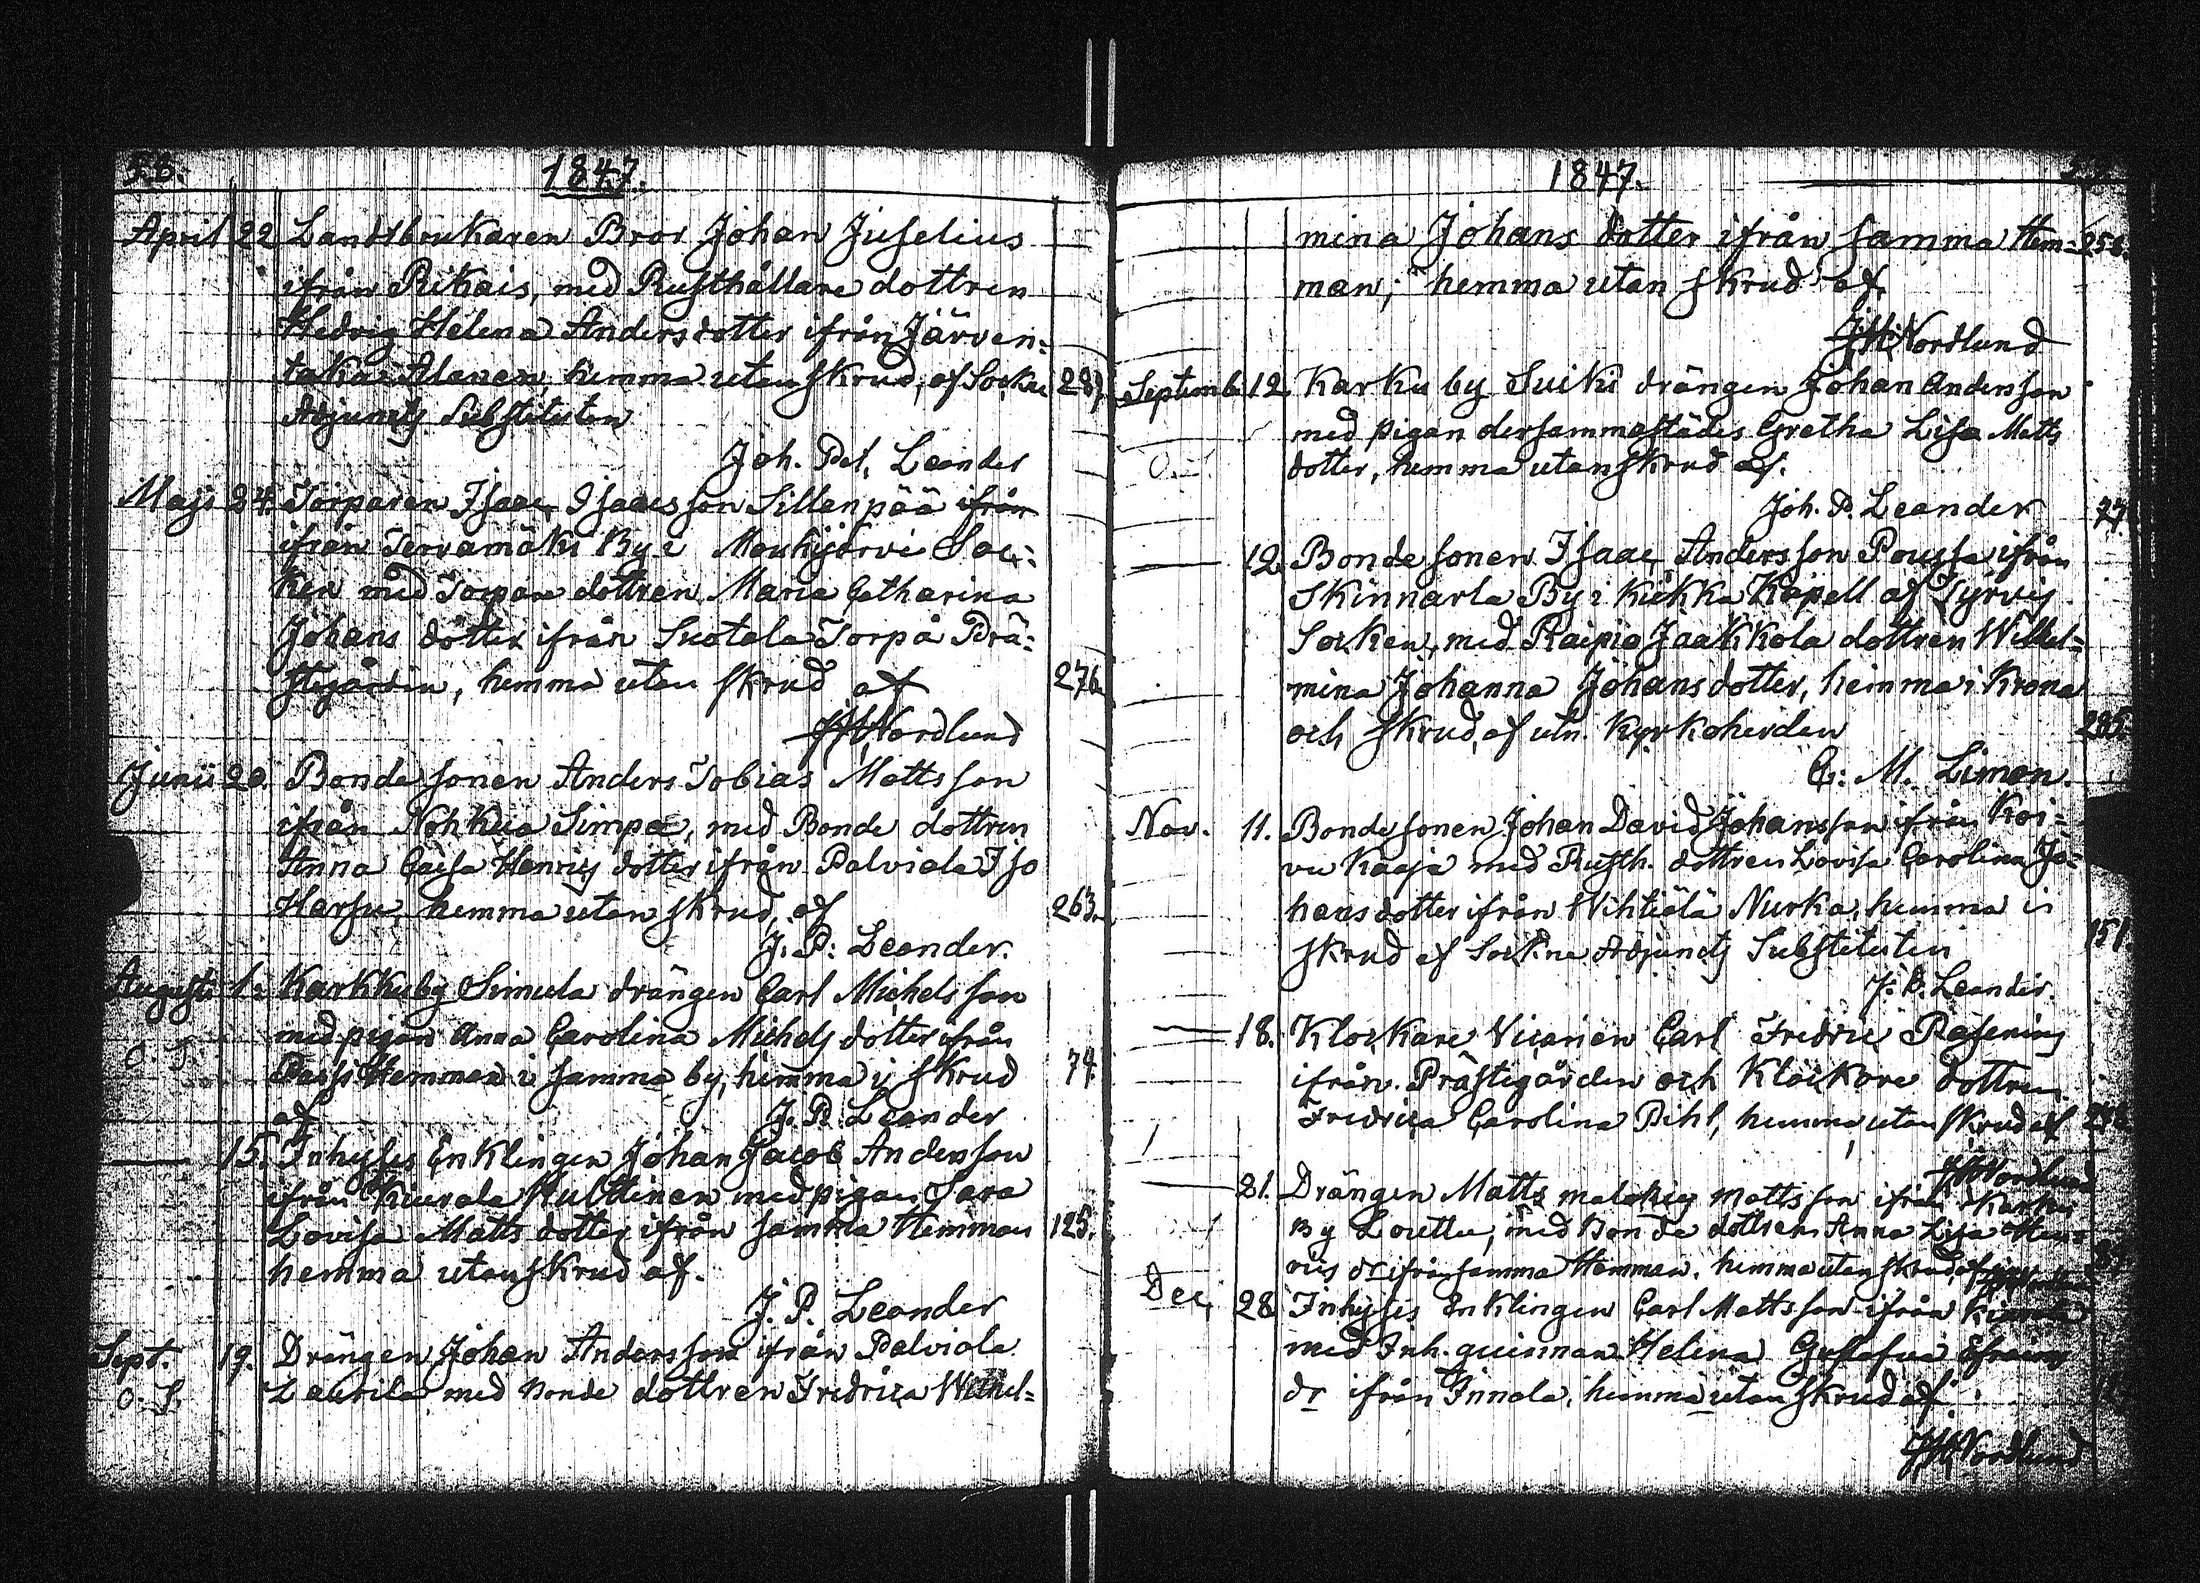 56.
1847.
April 22 Landtbrukaren Bror Johan Juselius
ifrån Rikais, med Rusthållare dottren
Hedvig Helena Andersdotter ifrån Järven-
taka Alanen, hemma utan skrud, af Sockne 287.
Adjuncts Substituten
Joh. Pet. Leander
Maji 24. Torparen Isaac Isaacsson Sillanpää ifrån
ifrån Tervamäki By i Mouhijärvi Soc-
ken med Torpare dottren Maria Catharina
Johans dotter ifrån Suotala Torp å Prä-
stegården, hemma utan skrud af 276.
JH Nordlund
Junii 20. Bonde sonen Anders Tobias Mattsson
ifrån Nohkua Simpa, med Bonde dottren
Anna Caisa Henrics dotter ifrån Palviala Iso
Harsu, hemma utan skrud, af 263.
J. P. Leander.
Augusti 1. Karkku by Simula drängen Carl Michelsson
O. S. med pigan Anna Carolina Michels dotter ifrån
Passi Hemman i samma by, hemma i skrud 74.
af J. P. Leander
15. Inhyses Enklingen Johan Jacob Andersson
ifrån Kiurala Hulttinen med pigan Sara
Lovisa Matts dotter ifrån samma Hemman 125.
hemma utan skrud af.
J. P. Leander
Sept. 19. Drängen Johan Andersson ifrån Palviala
O. S. Laurila med Bonde dottren Fredrica Wilhel-
1847.
mina Johans dotter ifrån samma Hem- 258.
man, hemma utan skrud af
JH Nordlund
Septemb. 12 Karku by Suiki drängen Johan Andersson
med pigan dersammastädes Gretha Lisa Matts
O. dotter, hemma utan skrud af.
Joh. P. Leander
12. Bonde sonen Isaac Andersson Poussa ifrån
Skinnarla By i Kiikka Kapell af Tyrvis
Socken, med Raipio Jaakkola dottren Wilhel-
mina Johanna Johans dotter, hemma i Krona
och skrud, af utn. Kyrkoherden 285.
C. M. Limon.
Nov. 11. Bonde sonen Johan David Johansson ifrån Koi-
vu Kaaja med Rusth. dottren Lovisa Carolina Jo-
hans dotter ifrån Wihtiälä Nurka, hemma i
skrud af Sockne Adjuncts Substituten 151.
J. P. Leander.
18. Klockare Vicarien Carl Fredric Rasenius
ifrån Prästegården och Klockare dottren
Fredrica Carolina Pihl, hemma utan skrud af
JH Nordlund
21. Drängen Matts Malakias Mattsson ifrån Karku
By Louttu, med Bonde dottren Anna Lisa Hen-
rics dr ifrån samma Hemman, hemma utan skrud, af
Dec. 28 Inhyses Enklingen Carl Mattsson ifrån
med Inh. quinnan Helena Gustafva Efraims
dr ifrån Innala, hemma utan skrud af
JH Nordlund